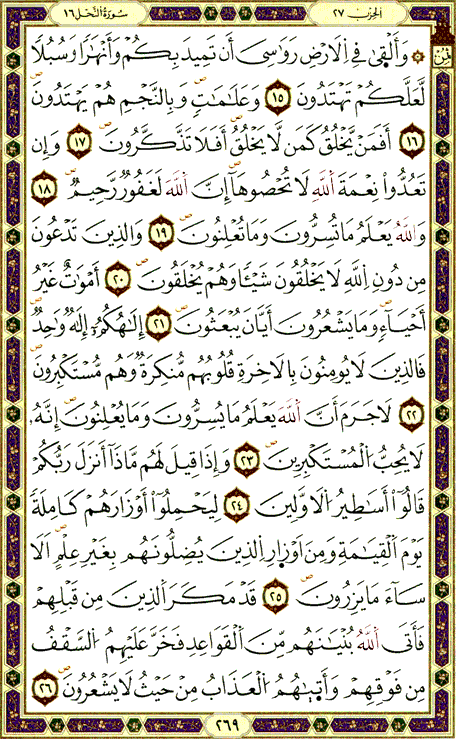 الحزب ٢٧
سُورَةُ النَّحْل ١٦
ثمن
۞ وَأَلْقَىٰ فِى اِلَارْضِ رَوَٰسِىَ أَن تَمِيدَ بِكُمْ وَأَنْهَٰرًا وَسُبُلًا
لَّعَلَّكُمْ تَهْتَدُونَ ١٥ وَعَلَٰمَٰتٍ وَبِالنَّجْمِ هُمْ يَهْتَدُونَ
١٦ أَفَمَنْ يَّخْلُقُ كَمَن لَّا يَخْلُقُ أَفَلَا تَذَّكَّرُونَ ١٧ وَإِن
تَعُدُّوا۟ نِعْمَةَ اَللَّهِ لَا تُحْصُوهَآ إِنَّ اَللَّهَ لَغَفُورٌ رَّحِيمٌ ١٨
وَاللَّهُ يَعْلَمُ مَا تُسِرُّونَ وَمَا تُعْلِنُونَ ١٩ وَالذِينَ تَدْعُونَ
مِن دُونِ اِللَّهِ لَا يَخْلُقُونَ شَيْـًٔا وَهُمْ يُخْلَقُونَ ٢٠ أَمْوَٰتٌ غَيْرُ
أَحْيَآءٍ وَمَا يَشْعُرُونَ أَيَّانَ يُبْعَثُونَ ٢١ إِلَٰهُكُمُۥٓ إِلَٰهٌ وَٰحِدٌ
فَالذِينَ لَا يُومِنُونَ بِالَاخِرَةِ قُلُوبُهُم مُّنكِرَةٌ وَهُم مُّسْتَكْبِرُونَ
٢٢ لَا جَرَمَ أَنَّ اَللَّهَ يَعْلَمُ مَا يُسِرُّونَ وَمَا يُعْلِنُونَ إِنَّهُۥ
لَا يُحِبُّ اُلْمُسْتَكْبِرِينَ ٢٣ وَإِذَا قِيلَ لَهُم مَّاذَآ أَنزَلَ رَبُّكُمْ
قَالُوٓا۟ أَسَٰطِيرُ الَاوَّلِينَ ٢٤ لِيَحْمِلُوٓا۟ أَوْزَارَهُمْ كَامِلَةً
يَوْمَ اَلْقِيَٰمَةِ وَمِنَ اَوْزَارِ الذِينَ يُضِلُّونَهُم بِغَيْرِ عِلْمٍ اَلَا
سَآءَ مَا يَزِرُونَ ٢٥ قَدْ مَكَرَ اَلذِينَ مِن قَبْلِهِمْ
فَأَتَى اَللَّهُ بُنْيَٰنَهُم مِّنَ اَلْقَوَاعِدِ فَخَرَّ عَلَيْهِمُ اُلسَّقْفُ
مِن فَوْقِهِمْ وَأَتَىٰهُمُ اُلْعَذَابُ مِنْ حَيْثُ لَا يَشْعُرُونَ ٢٦
٢٦٩